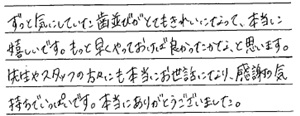 ずっと気にしていた歯並びがとてもきれいになって、本当に
嬉しいです。もっと早くやっておけば良かったかな、と思います。
先生やスタッフの方々にも本当にお世話になり、感謝の気
持ちでいっぱいです。本当にありがとうございました。